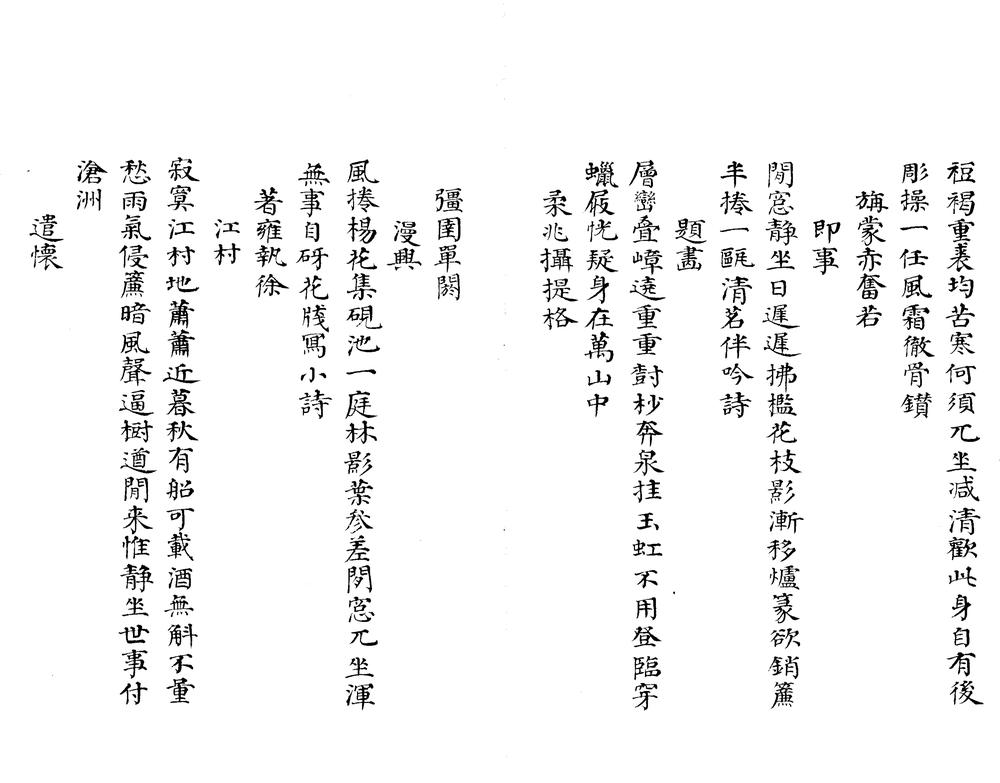 裋褐重裘均苦寒何須兀坐减清歡此身自有後
彫操一任風霜徹骨鑚
旃蒙赤奮若
即事
閒窓静坐日遲遲拂檻花枝影漸移爐篆欲銷簾
半捲一甌清茗伴吟詩
題畵
層巒叠嶂遶重重討杪奔泉挂玉虹不用登臨穿
蠟屐恍疑身在萬山中
柔兆攝提格
彊圉單閼
漫興
風捲楊花集硯池一庭林影葉參差閒窓兀坐渾
無事自砑花牋寫小詩
著雍執徐
江村
寂寞江村地蕭蕭近暮秋有船可載酒無斛不量
愁雨氣侵簾暗風聲逼樹遒閒来惟静坐世事付
滄洲
遣懷